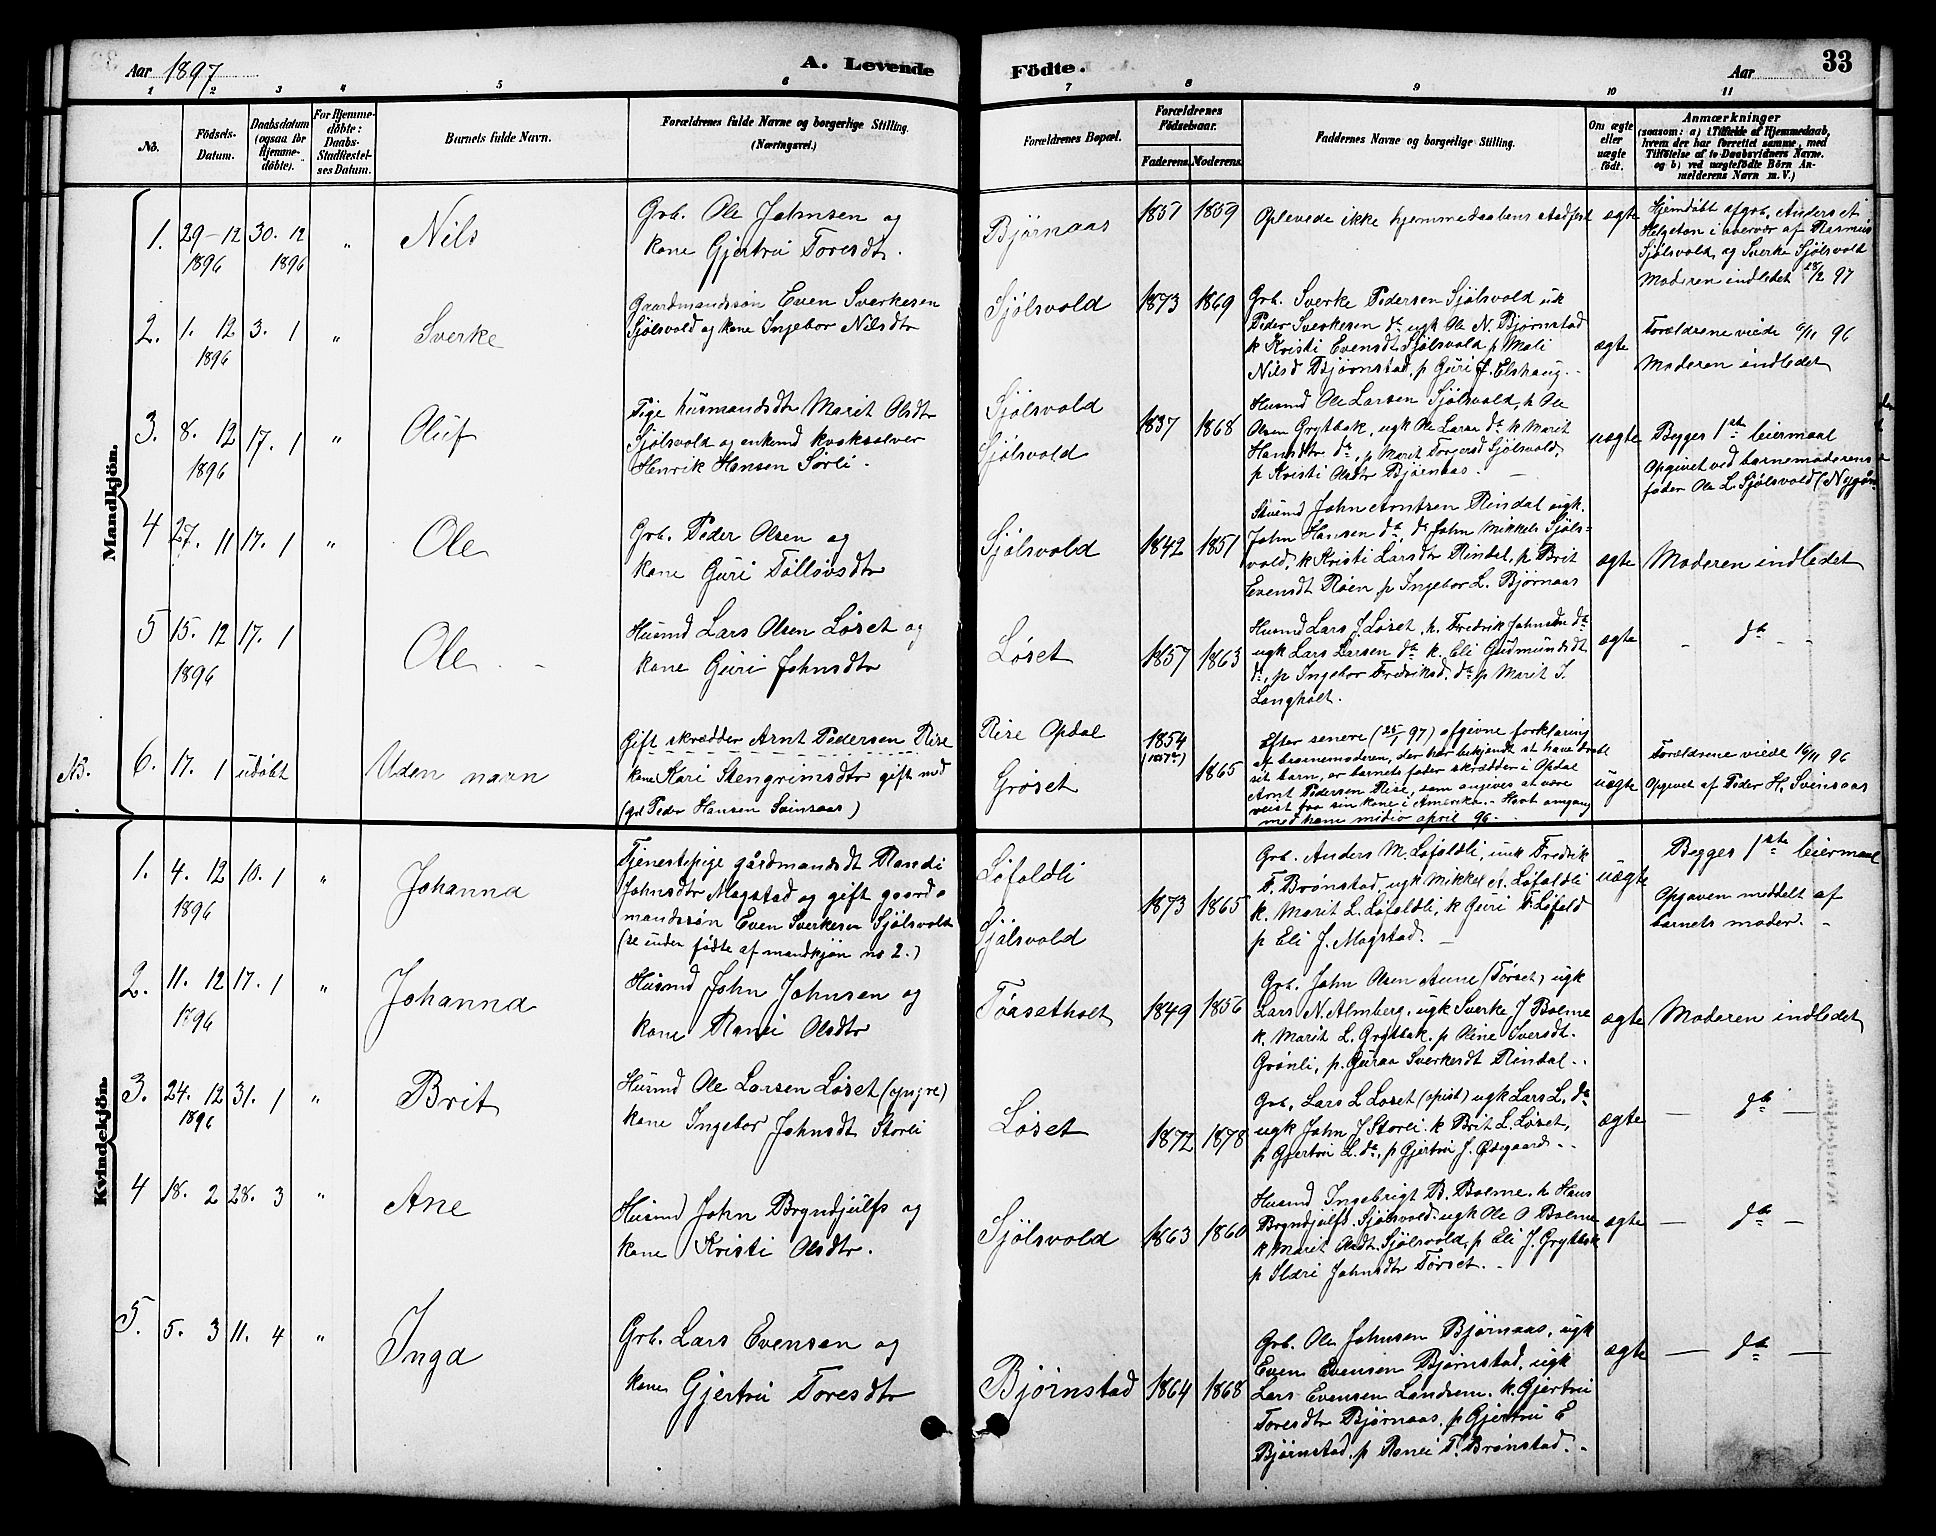 Aar 1897
A. Levende
Födte.
Aar
33
1 2 3 4 5 6 7 8 9 10 11
No.
Födsels-
Datum.
Daabsdatum
(ogsaa for
Hjemme-
döbte).
For Hjemme-
döbte:
Daabs-
Stadfæstel-
ses Datum.
Barnets fulde Navn.
Forældrenes fulde Navne og borgerlige Stilling.
(Næringsvei.)
Forældrenes Bopæl.
Forældrenes
Födselsaar.
Faderens.
Moderens.
Faddernes Navne og borgerlige Stilling.
Om ægte
eller
uægte
födt.
Anmærkninger
(saasom: a) i Tilfælde af Hjemmedaab,
hvem der har forrettet samme, med
Tilföielse af to Daabsvidners Navne,
og b) ved uægtefödte Börn An-
melderens Navn m. V.)
Mandkjön.
1. 29-12 1896
30. 12 1896
"
Nils
Grb. Ole Johnsen og
kone Gjertru Toresdtr.
Bjørnaas
1857 1859
Oplevede ikke hjemmedaabens stadfest
ægte
Hjemdøbt af grb. Anders A
Helgeton i overvær af Rasmus
Sjølsvold, og Sverke Sjølsvold
Moderen indledet 28/2 97
2. 1. 12 1896
3. 1
"
Sverke
Gaardmandssøn Even Sverkesen
Sjölsvold og kone Ingebor Nilsdtr
Sjølsvold
1873 1869
Grb. Sverke Pedersen Sjølsvold uk
Peder Sverkesen do ugk Ole N. Bjørnstad
k Kristi Evensdt Sjølsvold p Mali
Nilsd Bjørnstad, p Guri J. Elshaug.
ægte
Forældrene viede 6/11 96
Moderen indledet
3. 8. 12 1896
17. 1
"
Oluf
Pige husmandsdtr Marit Olsdtr
Sjølsvold og enkemd kvaksalver
Henrik Hansen Sørli.
Sjølsvold
Sjølsvold
1837 1868
Husmd Ole Larsen Sjølsvold, h Ole
Olsen Grytbak, ugk Ole Larsn do k Marit
Hansdtr do, p Marit Torgersd Sjølsvold,
p Kristi Olsdtr Bjørnaas.
uægte
Begges 1ste leiermaal
Opgivet ved barnemoderens
fader Ole L. Sjølsvold
4 27. 11
17. 1
"
Ole
Grb. Peder Olsen og
kone Guri Tollevsdtr
Sjølsvold
1842 1851
John Arntsen Rindal ugk.
John Hansen do, do John Mikkels Sjøls-
vold, k Kristi Larsdtr Rindal, p Brit
Evensdt Røen p Ingebor L. Bjørnaas
ægte
Moderen indledet
5 15. 12 1896
17. 1
Ole
Husmd Lars Olsen Løset og
kone Guri Johnsdtr
Løset
1857 1863
Husmd Lars J. Løset, h. Fredrik Johnsen do
ugk Lars Larsen do k. Eli Gudmundsdt
do, p Ingebor Fredriksd. do p Marit J.
Langholt.
ægte
- do -
NB.
6. 17. 1
udøbt
Uden navn
Gift skrædder Arnt Pedersen Rise
kone Kari Stengrimsdtr gift med
(grb Peder Hansen Svinsaas)
Rise Opdal
Grøset
1854
1865
Efter senere (25/1 97) afgivne forklaring
af barnemoderen, der har bekjendt at have dræbt
sit barn, er barnets fader skrædder i Opdal
Arnt Pedersen Rise, som angives at være
reist fra sin kone i Amerika. - Havt omgang
med ham midio april 96.
uægte
Forældrene viede 16/11 96
Opgivet af Peder H. Svinsaas
Kvindekjön.
1. 4. 12 1896
10. 1
"
Johanna
Tjenestepige gårdmandsdt Randi
Johnsdtr Magstad og gift gaard-
mandssøn Even Sverkesen Sjølsvold
(se under fødte af mandkjøn no 2.)
Løfaldli
Sjølsvold
1873 1865
Grb. Anders M. Løfaldli, unk Fredrik
T. Brønstad, ugk Mikkel A. Løfaldli
k. Marit L. Løfaldli, k Guri F. Løfald
p Eli J. Magstad.
uægte
Begges 1ste leiermaal
Opgaven meddelt af
barnets moder.
2. 11. 12 1796
17. 1
"
Johanna
Husmd John Johnsen og
kone Ranei Olsdtr
Tørsetholt
1849 1856
Grb. John Olsen Aune (Tørset) ugk
Lars N. Almberg, ugk Sverke J Bolme
k. Marit L. Grytbak, p. Oline Iversdt.
Grønli, p. Guraa Sverkesdt Rindal.
ægte
Moderen indledet
3. 24. 12 1896
31. 1
"
Brit
Husmd Ole Larsen Løset
kone Ingebor Johnsdt Storli
Løset
1872 1878
Grb. Lars L Løset ugk Lars L. do
ugk John J Storli. k Brit L. Løset,
p Gjertru L. do, p Gjertru J. Ødegaard.
ægte
- do -
4 18. 2
28. 3
"
Ane
Husmd John Bryndjulfs og
kone Kristi Olsdtr.
Sjølsvold
1863 1860
Husmd Ingebrigt B. Bolme. h Hans
Bryndjulfs. Sjølsvold. ugk Ole O Bolme
k Marit Olsdt. Sjølsvold, p Eli J. Grytbak
p Sløri Johnsdtr Tørset.
ægte
- do -
5. 5. 3
11. 4
"
Inga
Grb. Lars Evensen og
kone Gjertru Toresdtr
Bjørnstad
1864 1868
Grb. Ole Johnsen Bjørnaas, ugk
Even Evensen Bjørnstad, ugk
Lars Evensen Landsem. k. Gjertru
Toresdtr Bjørnaas, p Gjertru E
Bjørnstad, p Ranei T. Brønstad.
ægte
- do -